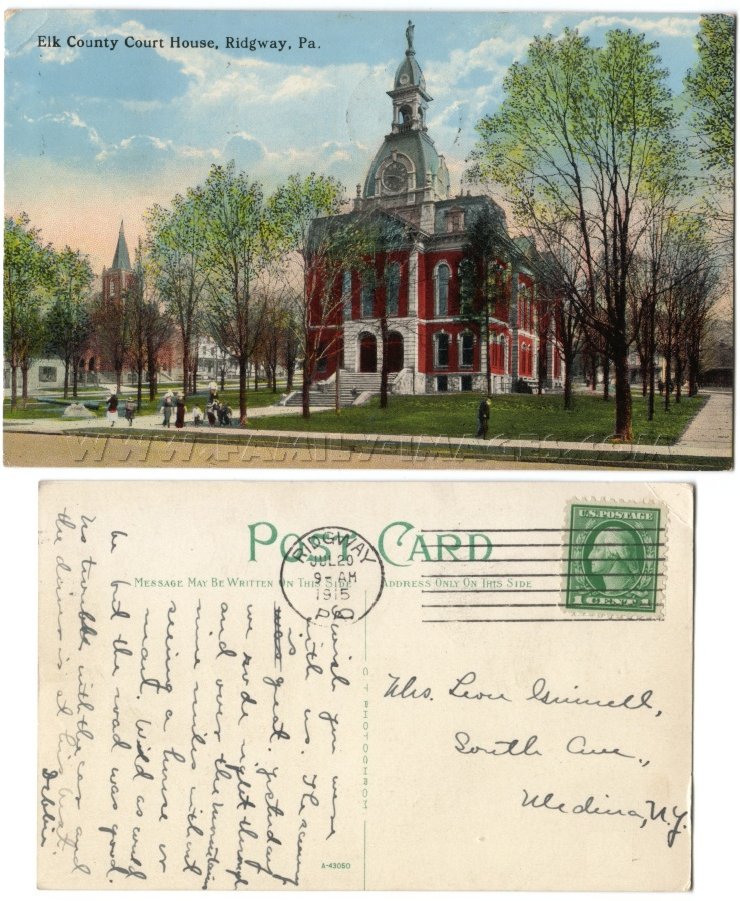 Elk County Court House, Ridgway, Pa.
WWW.FAMILY-IMAGES.COM
POST CARD
MESSAGE MAY BE WRITTEN ON THIS SIDE
ADDRESS ONLY ON THIS SIDE
RIDGWAY
JUL 20
9-AM
1915
PA
U.S. POSTAGE
1 CENT 1
Wish you were
with us. The scenery
is
was great. Yesterday
we rode right through
and over the mountains
nine miles without
seeing a house or
man. Wild as could
be but the road was good.
No trouble with the car and
the driver is at his best.
Debbie
C T PHOTOCHROM
A-43050
Mrs. Leon Grinnell,
South Ave.,
Medina, N.Y.